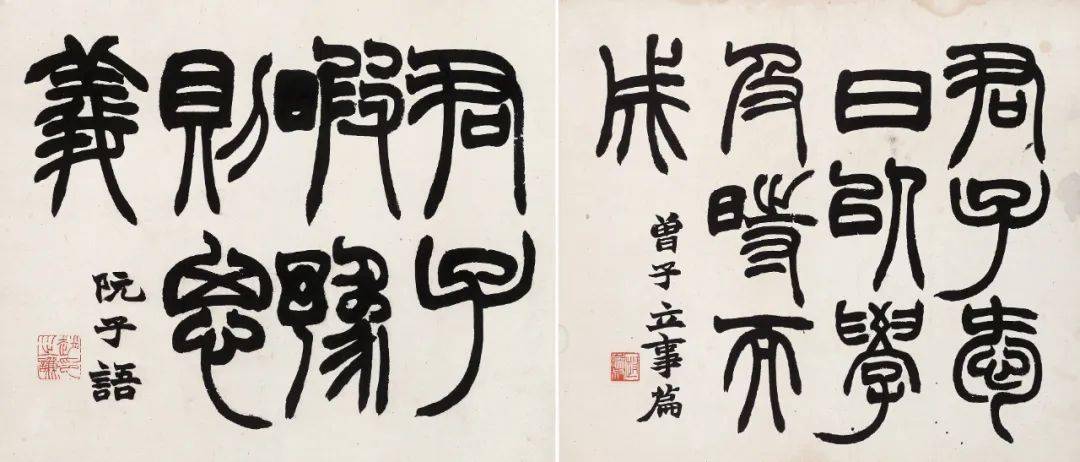 君子愛
日以學
及時而
成
曾子立事篇
君子
暇豫
則思
義
阮子語